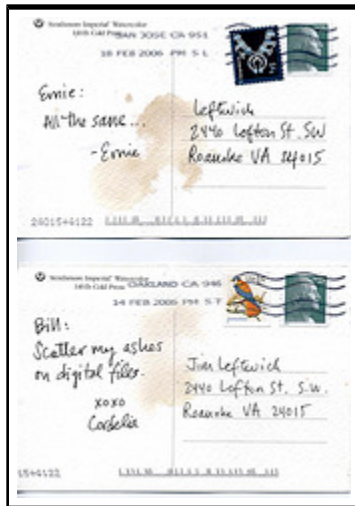 Strathmore Imperial Watercolor
140 lb Cold Press
SAN JOSE CA 951
18 FEB 2006 PM 5 L
Ernie:
All the same...
-Ernie
Leftwich
2440 Lofton St. SW
Roanoke VA 24015
24015+4122
Strathmore Imperial Watercolor
140 lb Cold Press
OAKLAND CA 946
14 FEB 2006 PM 5 T
Bill:
Scatter my ashes
on digital files.
xoxo
Cordelia
Jim Leftwich
2440 Lofton St. S.W.
Roanoke VA 24015
15+4122